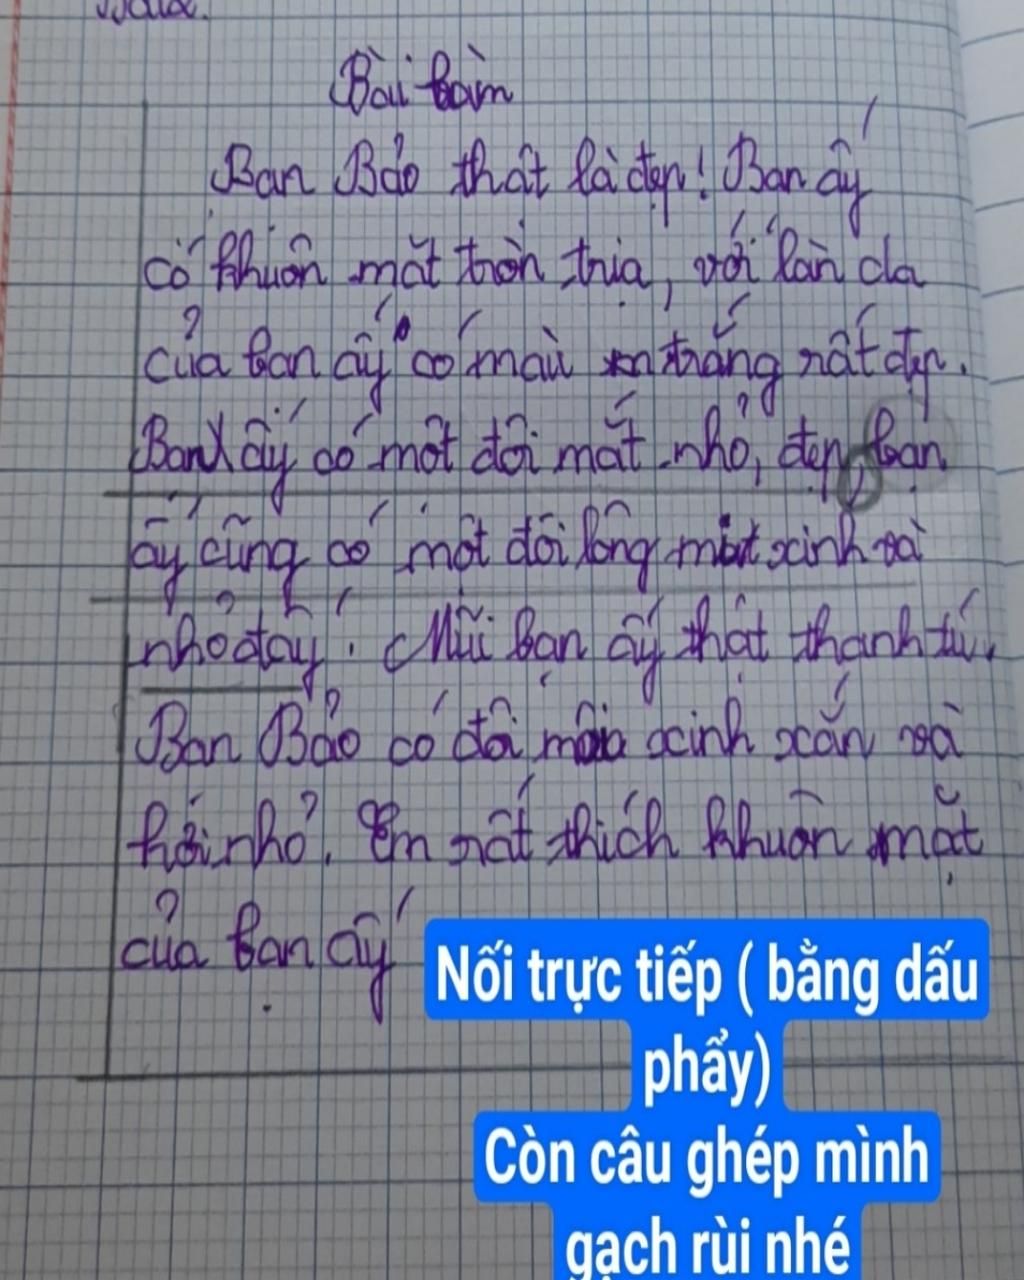 Bài làm
Bạn Bảo thật là đẹp! Bạn ấy
có khuôn mặt tròn trịa, với làn da
của bạn ấy có màu trắng rất đẹp.
Bạn ấy có một đôi mắt nhỏ, đẹp, bạn
ấy cũng có một đôi lông mi xinh và
nhỏ đấy! Mũi bạn ấy thật thanh tú.
Bạn Bảo có đôi môi xinh xắn và
hơi nhỏ. Em rất thích khuôn mặt
của bạn ấy.
Nối trực tiếp ( bằng dấu
phẩy)
Còn câu ghép mình
gạch rùi nhé